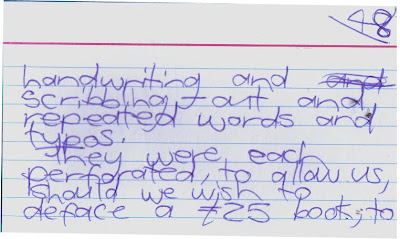 48
handwriting and and
scribbling-out and
repeated words and
typos.
They were each
perforated, to allow us,
should we wish to
deface a £25 book, to